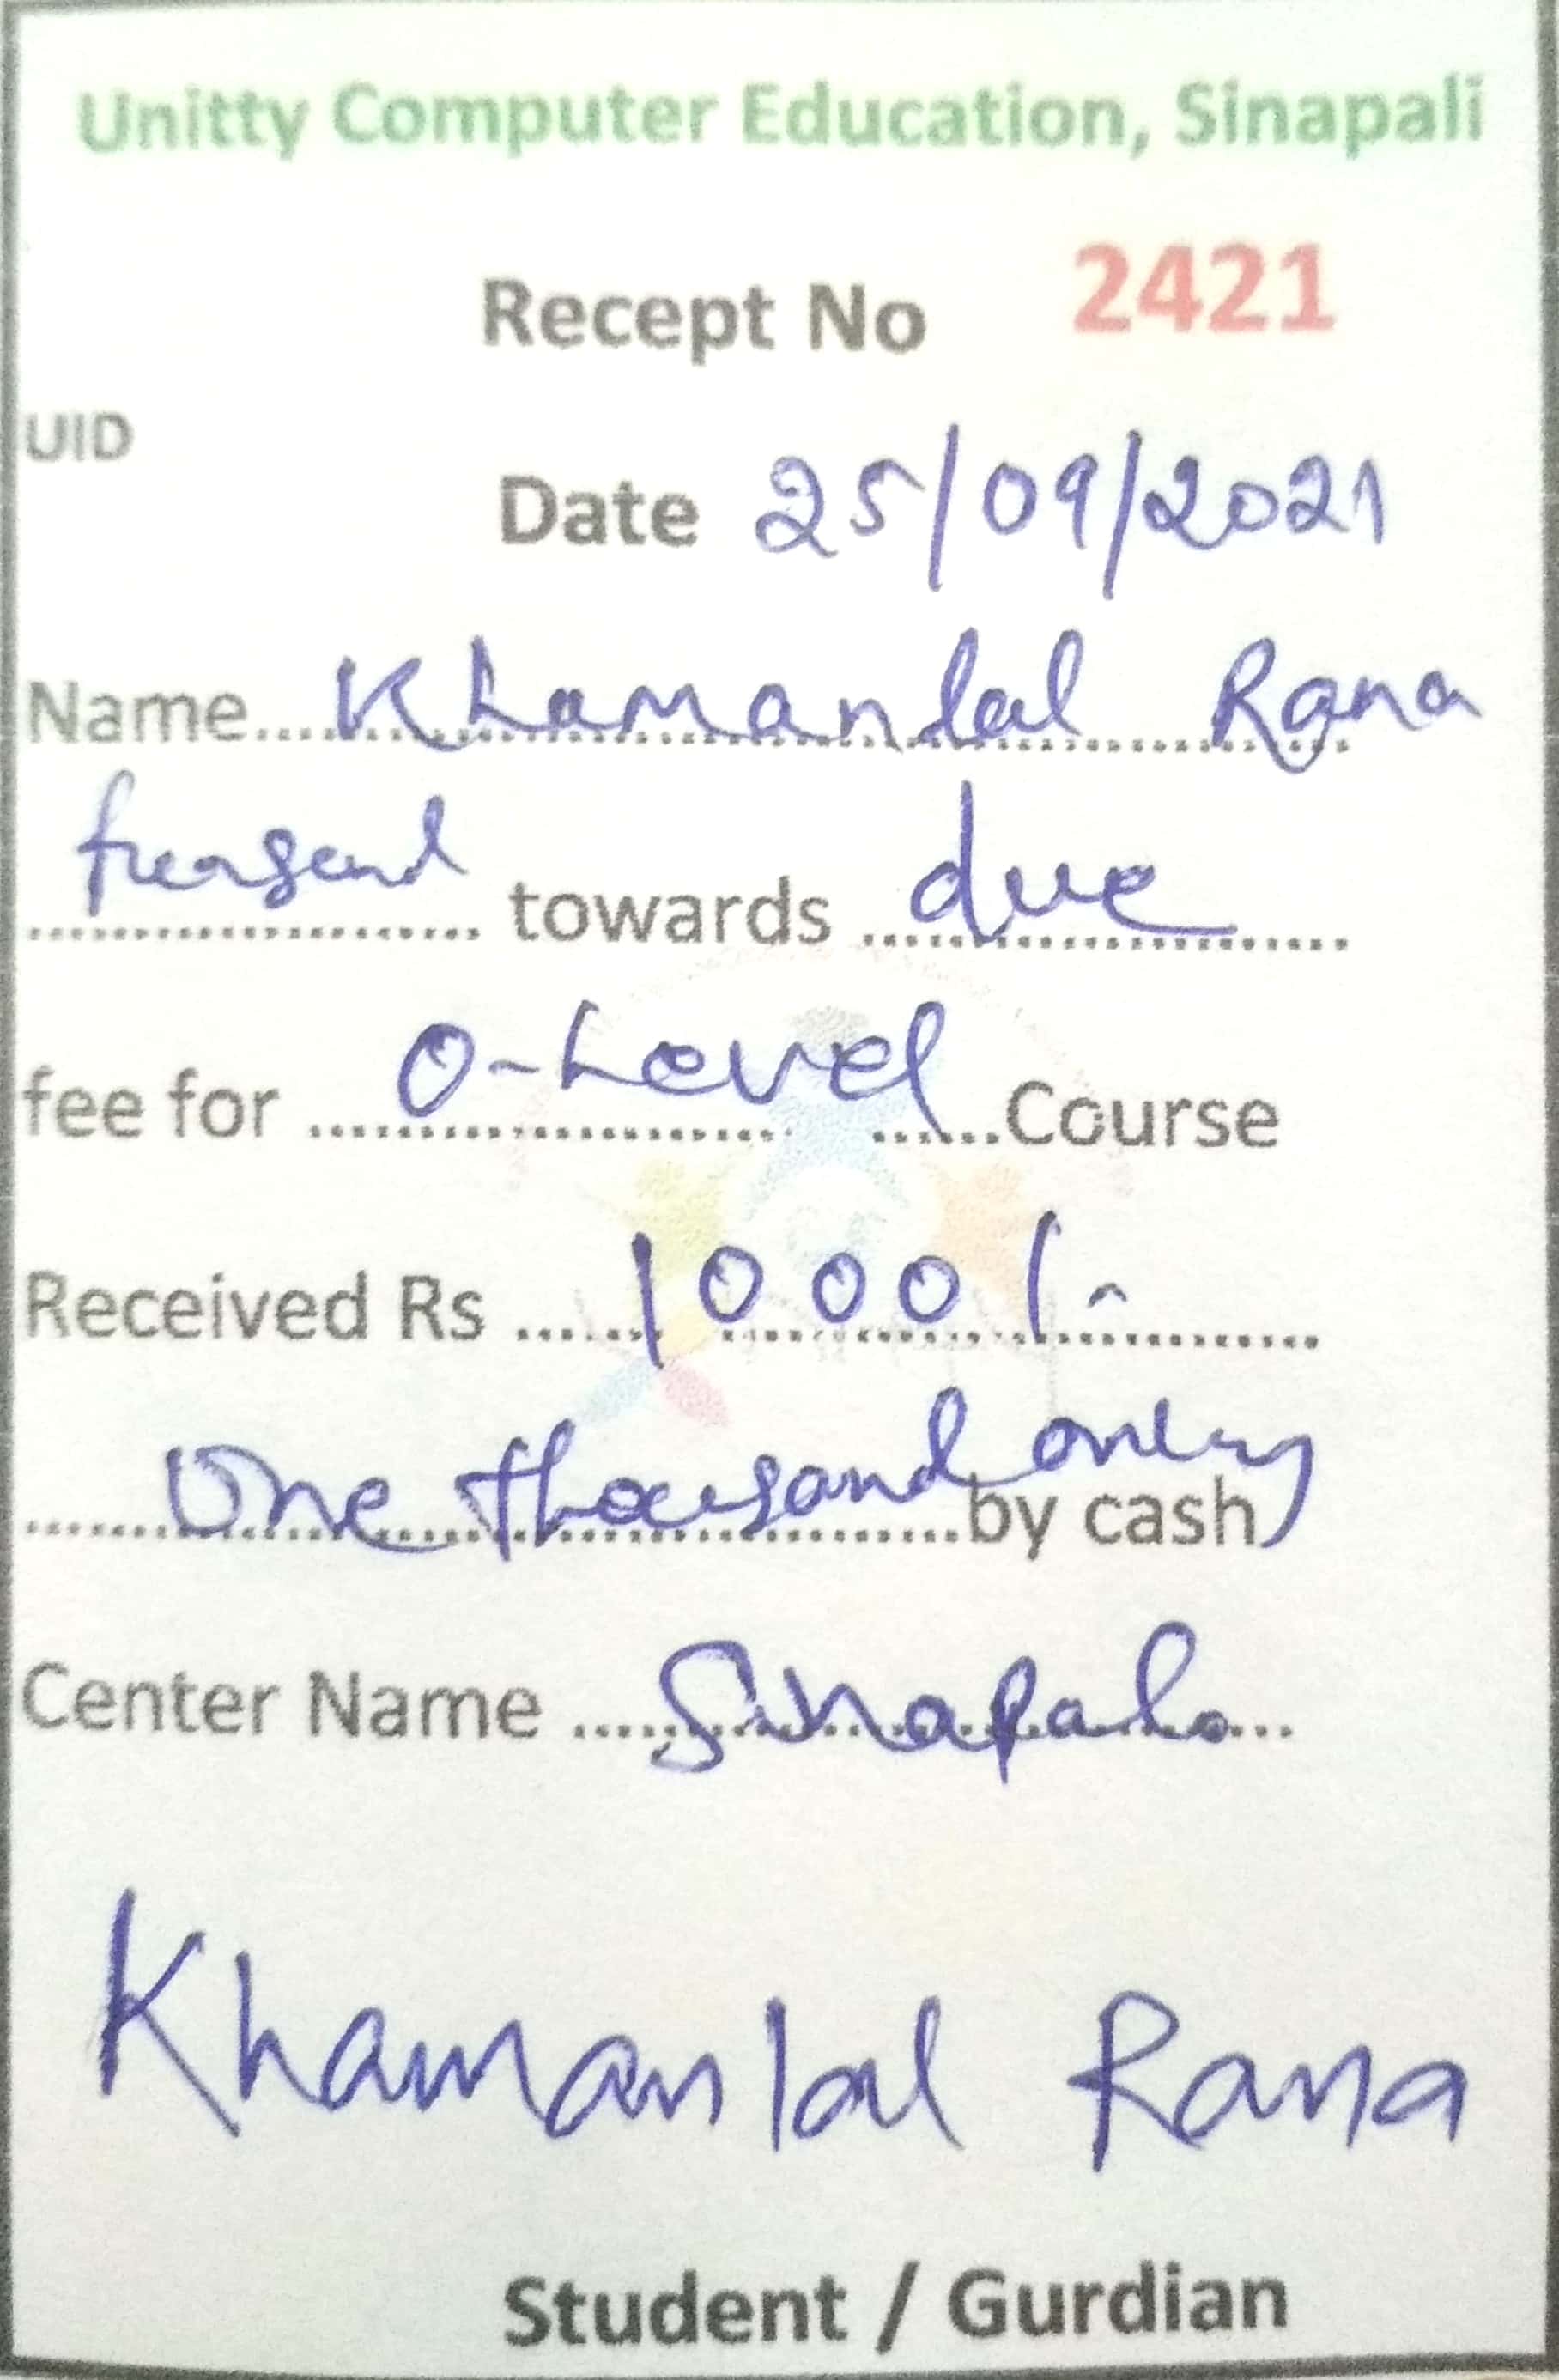 Unitty Computer Education, Sinapali
Recept No 2421
UID
Date 25/09/2021
Name Khamanlal Rana
towards due
fee for O-Level Course
Received Rs 1000/-
One thousand only by cash
Center Name Sinapali
Khamanlal Rana
Student / Gurdian